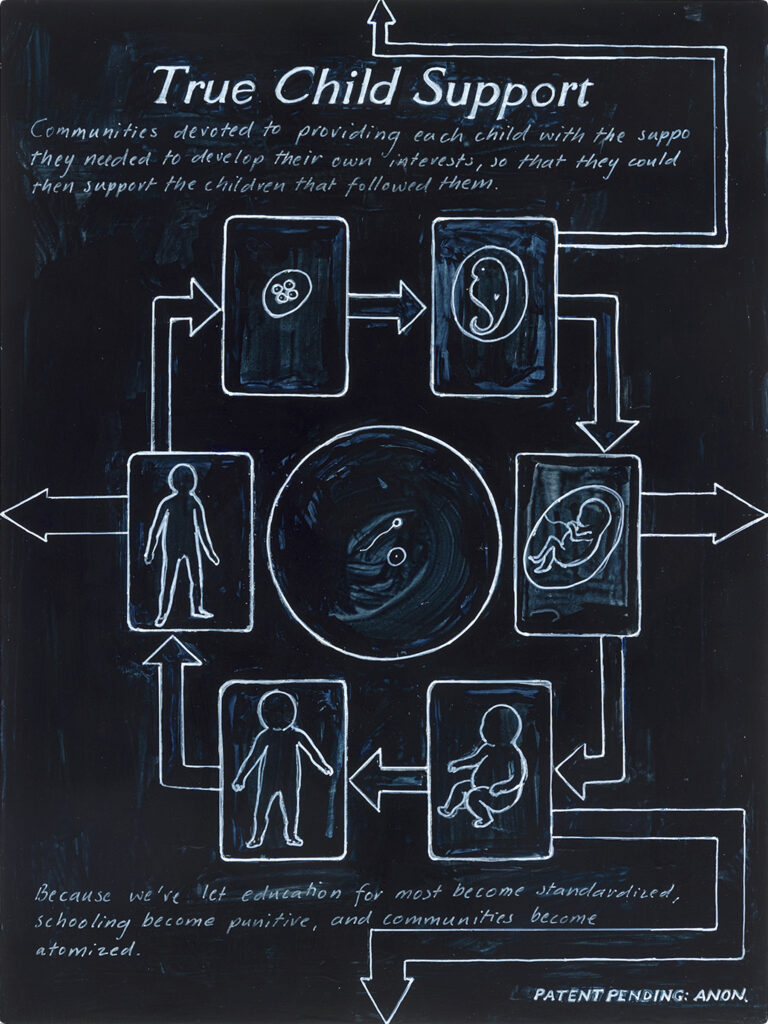 True Child Support
Communities devoted to providing each child with the suppo
they needed to develop their own interests, so that they could
then support the children that followed them.
Because we're let education for most become standardized,
schooling become punitive, and communities become
atomized.
PATENT PENDING: ANON.